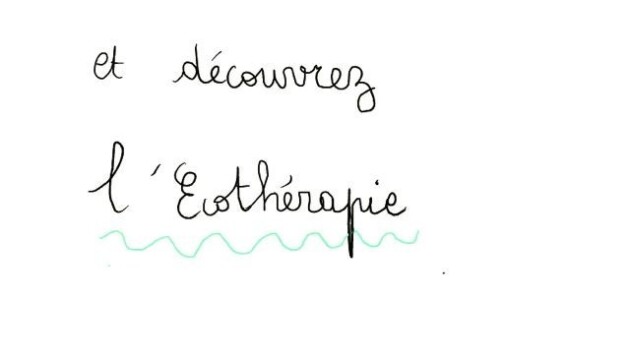 et découvrez
l'Ecothérapie